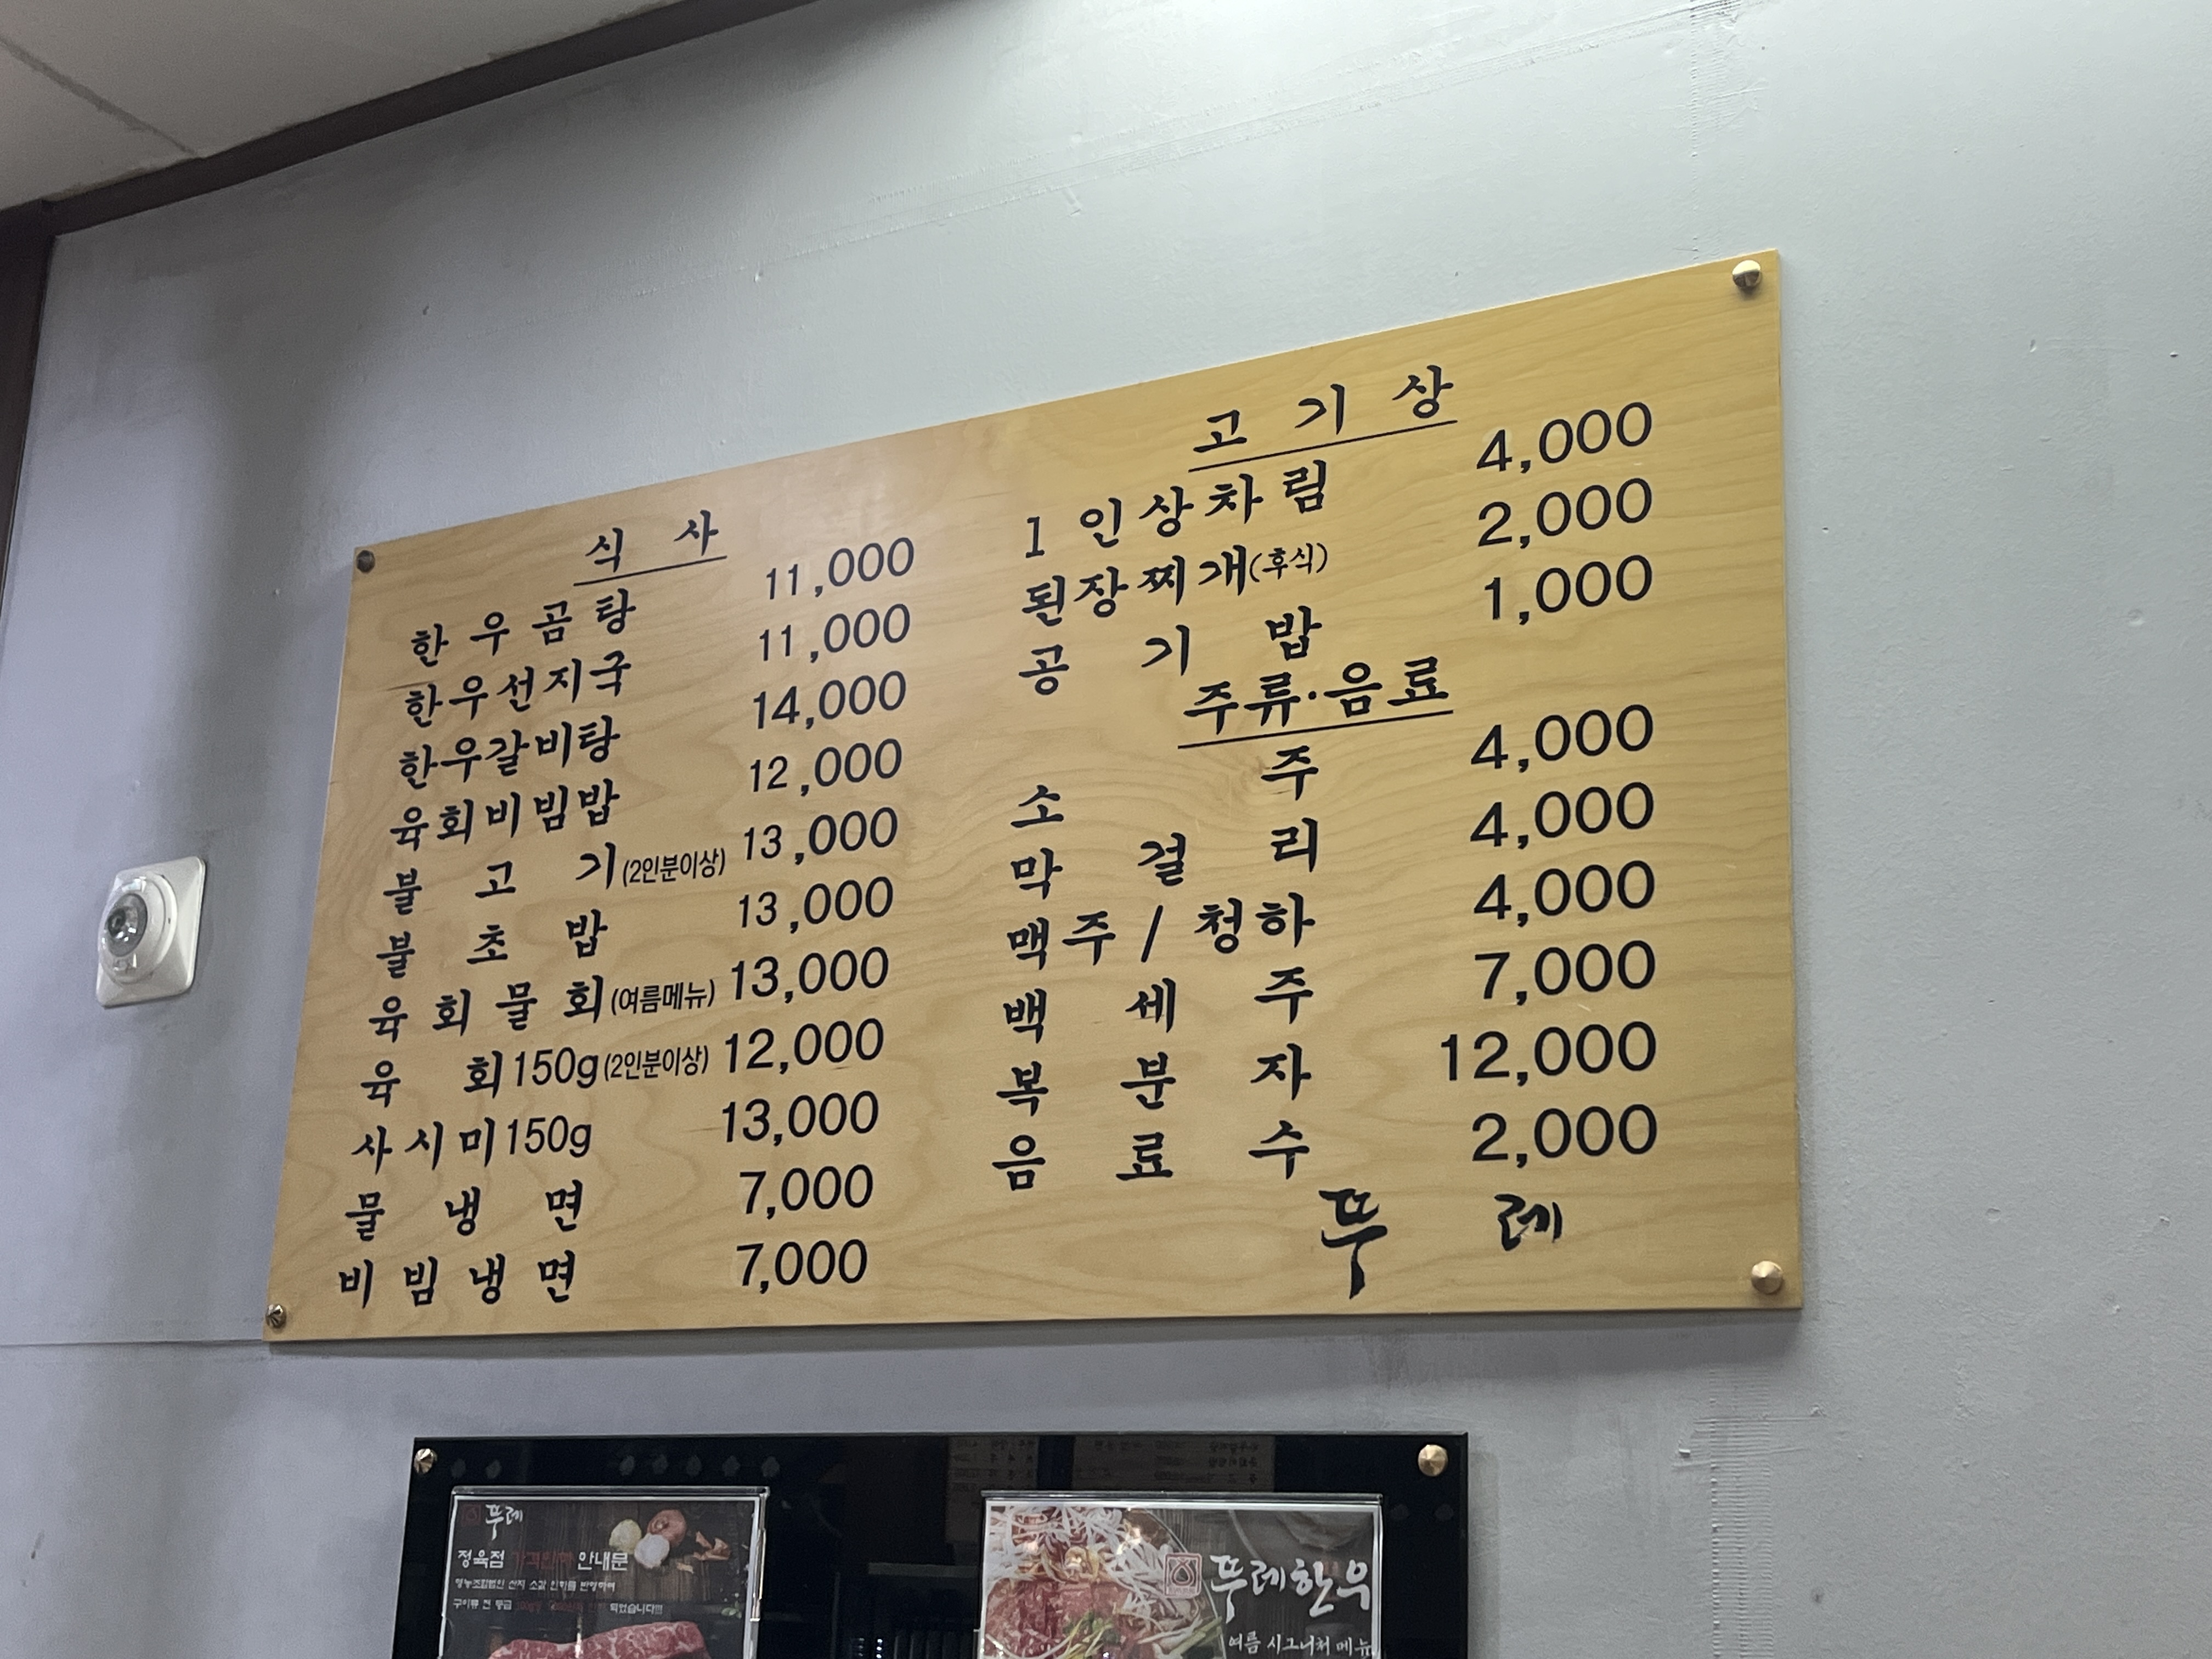 식 사
한우곰탕 11,000
한우선지국 11,000
한우갈비탕 14,000
육회비빔밥 12,000
불고기(2인분이상) 13,000
불초밥 13,000
육회물회(여름메뉴) 13,000
육회150g(2인분이상) 12,000
사시미150g 13,000
물냉면 7,000
비빔냉면 7,000
고기상
1인상차림 4,000
된장찌개(후식) 2,000
공기밥 1,000
주류·음료
소주 4,000
막걸리 4,000
맥주/청하 4,000
백세주 7,000
복분자 12,000
음료수 2,000
뚜레
뚜레
정육점 가격인하 안내문
영농조합법인 산지 소값 인하를 반영하여
구이류 전 등급 되었습니다!!!
뚜레한우
여름 시그니처 메뉴